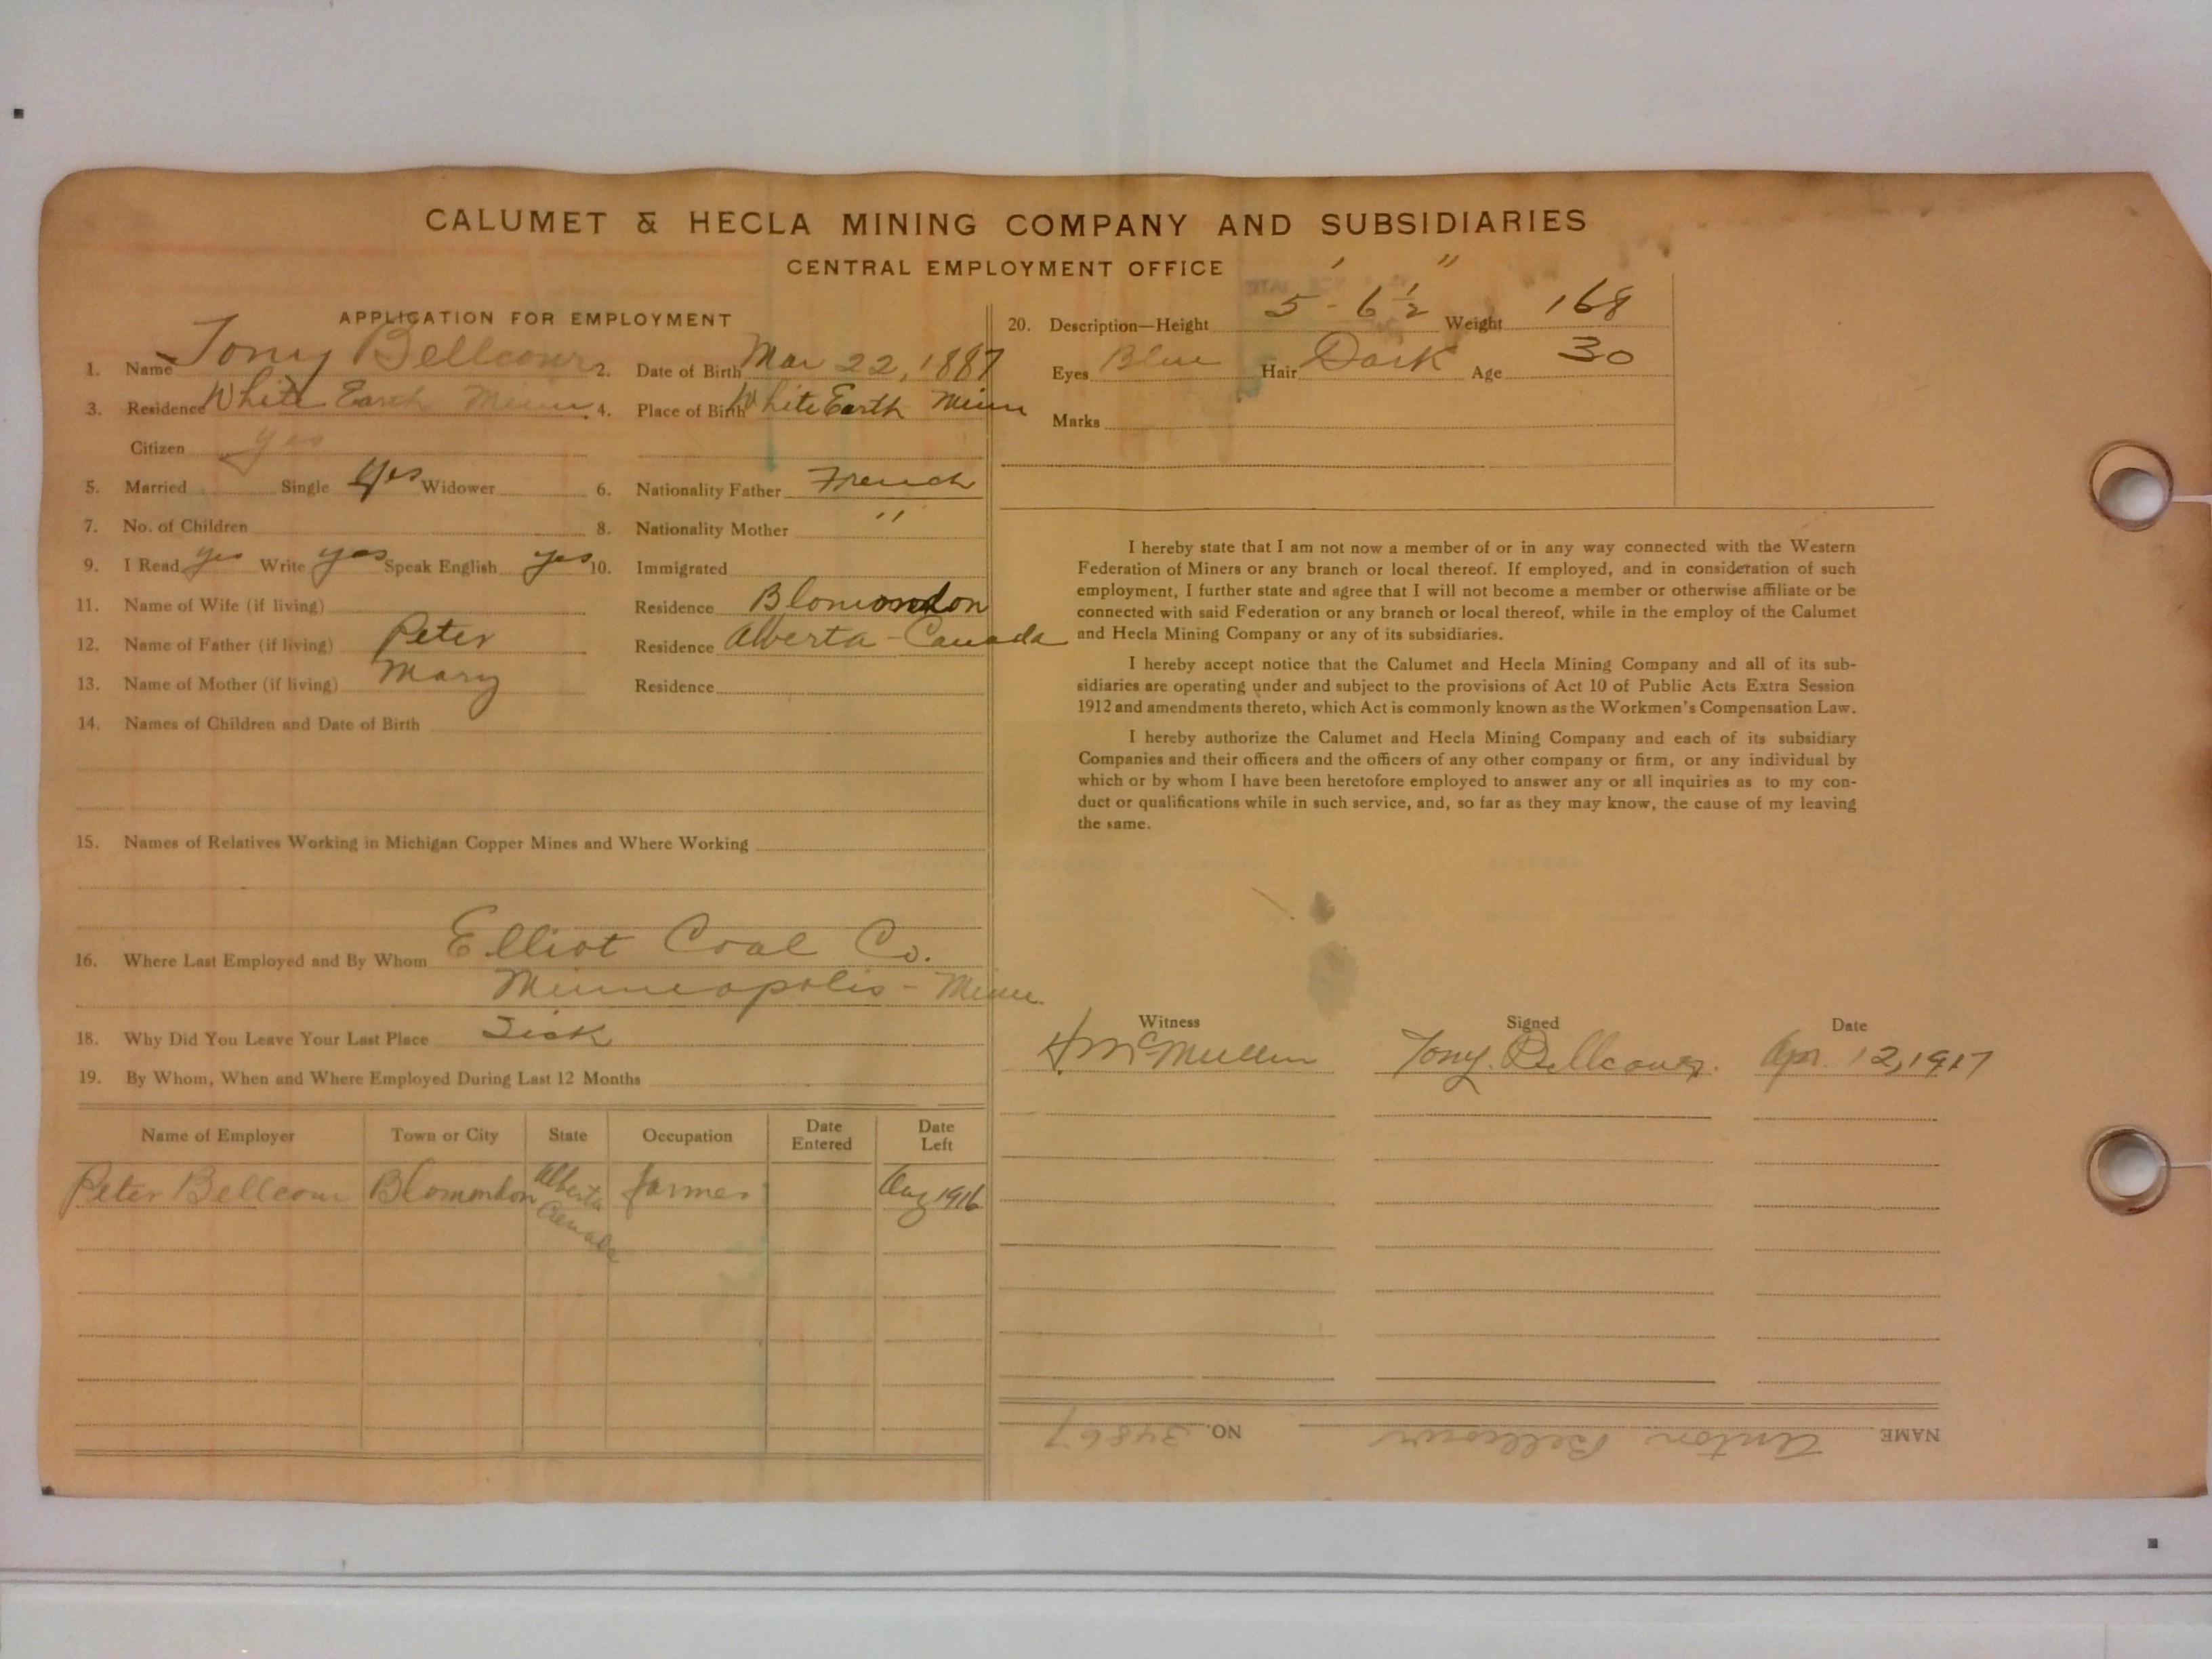 CALUMET & HECLA MINING COMPANY AND SUBSIDIARIES
CENTRAL EMPLOYMENT OFFICE
APPLICATION FOR EMPLOYMENT
1. Name Tony Bellcour 2. Date of Birth Mar 22, 1887
3. Residence White Earth Minn 4. Place of Birth White Earth Minn
Citizen yes
5. Married Single Yes Widower 6. Nationality Father French
7. No. of Children 8. Nationality Mother "
9. I Read yes Write yes Speak English yes 10. Immigrated
11. Name of Wife (if living) Residence Blomondon
12. Name of Father (if living) Peter Residence Alberta - Canada
13. Name of Mother (if living) Mary Residence
14. Names of Children and Date of Birth
15. Names of Relatives Working in Michigan Copper Mines and Where Working
16. Where Last Employed and By Whom Elliot Coal Co.
Minneapolis - Minn.
18. Why Did You Leave Your Last Place Sick
19. By Whom, When and Where Employed During Last 12 Months
Name of Employer Town or City State Occupation Date Entered Date Left
Peter Bellcour Blomondon Alberta Canada farmer Aug 1916
20. Description—Height 5' - 6 1/2" Weight 168
Eyes Blue Hair Dark Age 30
Marks
I hereby state that I am not now a member of or in any way connected with the Western
Federation of Miners or any branch or local thereof. If employed, and in consideration of such
employment, I further state and agree that I will not become a member or otherwise affiliate or be
connected with said Federation or any branch or local thereof, while in the employ of the Calumet
and Hecla Mining Company or any of its subsidiaries.
I hereby accept notice that the Calumet and Hecla Mining Company and all of its sub-
sidiaries are operating under and subject to the provisions of Act 10 of Public Acts Extra Session
1912 and amendments thereto, which Act is commonly known as the Workmen's Compensation Law.
I hereby authorize the Calumet and Hecla Mining Company and each of its subsidiary
Companies and their officers and the officers of any other company or firm, or any individual by
which or by whom I have been heretofore employed to answer any or all inquiries as to my con-
duct or qualifications while in such service, and, so far as they may know, the cause of my leaving
the same.
Witness Signed Date
H McMullen Tony Bellcour. Apr. 12, 1917
NAME Anton Bellcour NO. 34867